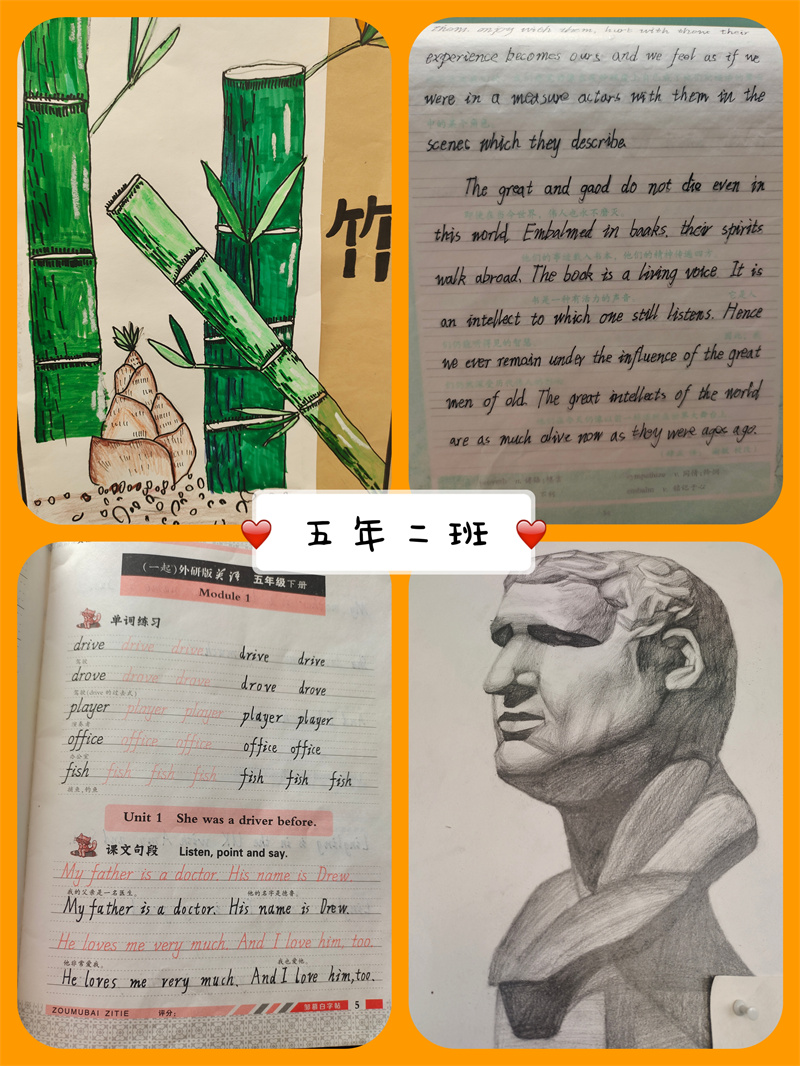 竹
them, enjoy with them, hurt with them their
experience becomes ours and we feel as if we
were in a measure actors with them in the
scenes which they describe.
The great and good do not die even in
this world. Embalmed in books, their spirits
walk abroad. The book is a living voice. It is
an intellect to which one still listens. Hence
we ever remain under the influence of the great
men of old. The great intellects of the world
are as much alive now as they were ages ago.
五年二班
(一起)外研版英语 五年级下册
Module 1
单词练习
drive drive drive drive drive
驾驶
drove drove drove drove drove
驾驶(drive 的过去式)
player player player player player
演奏者
office office office office office
办公室
fish fish fish fish fish fish fish
捕鱼,钓鱼
Unit 1 She was a driver before.
课文句段 Listen, point and say.
My father is a doctor. His name is Drew.
我的父亲是一名医生。 他的名字是德鲁。
My father is a doctor. His name is Drew.
He loves me very much. And I love him, too.
他非常爱我。 我也爱他。
He loves me very much. And I love him, too.
ZOUMUBAI ZITIE 评分: 邹慕白字帖 5